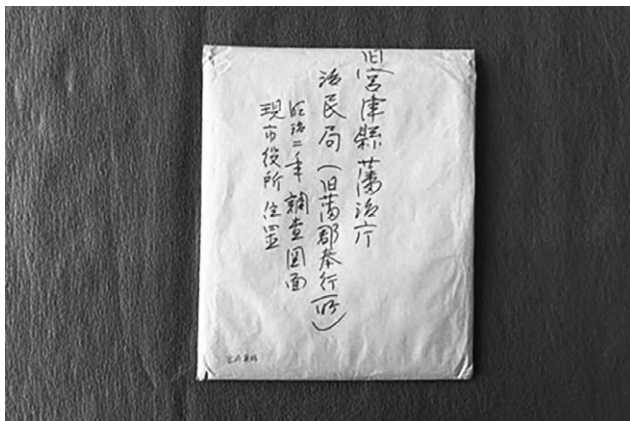 旧宮津縣藩治庁
治民局(旧藩郡奉行所)
明治二年 調査図面
現市役所位置